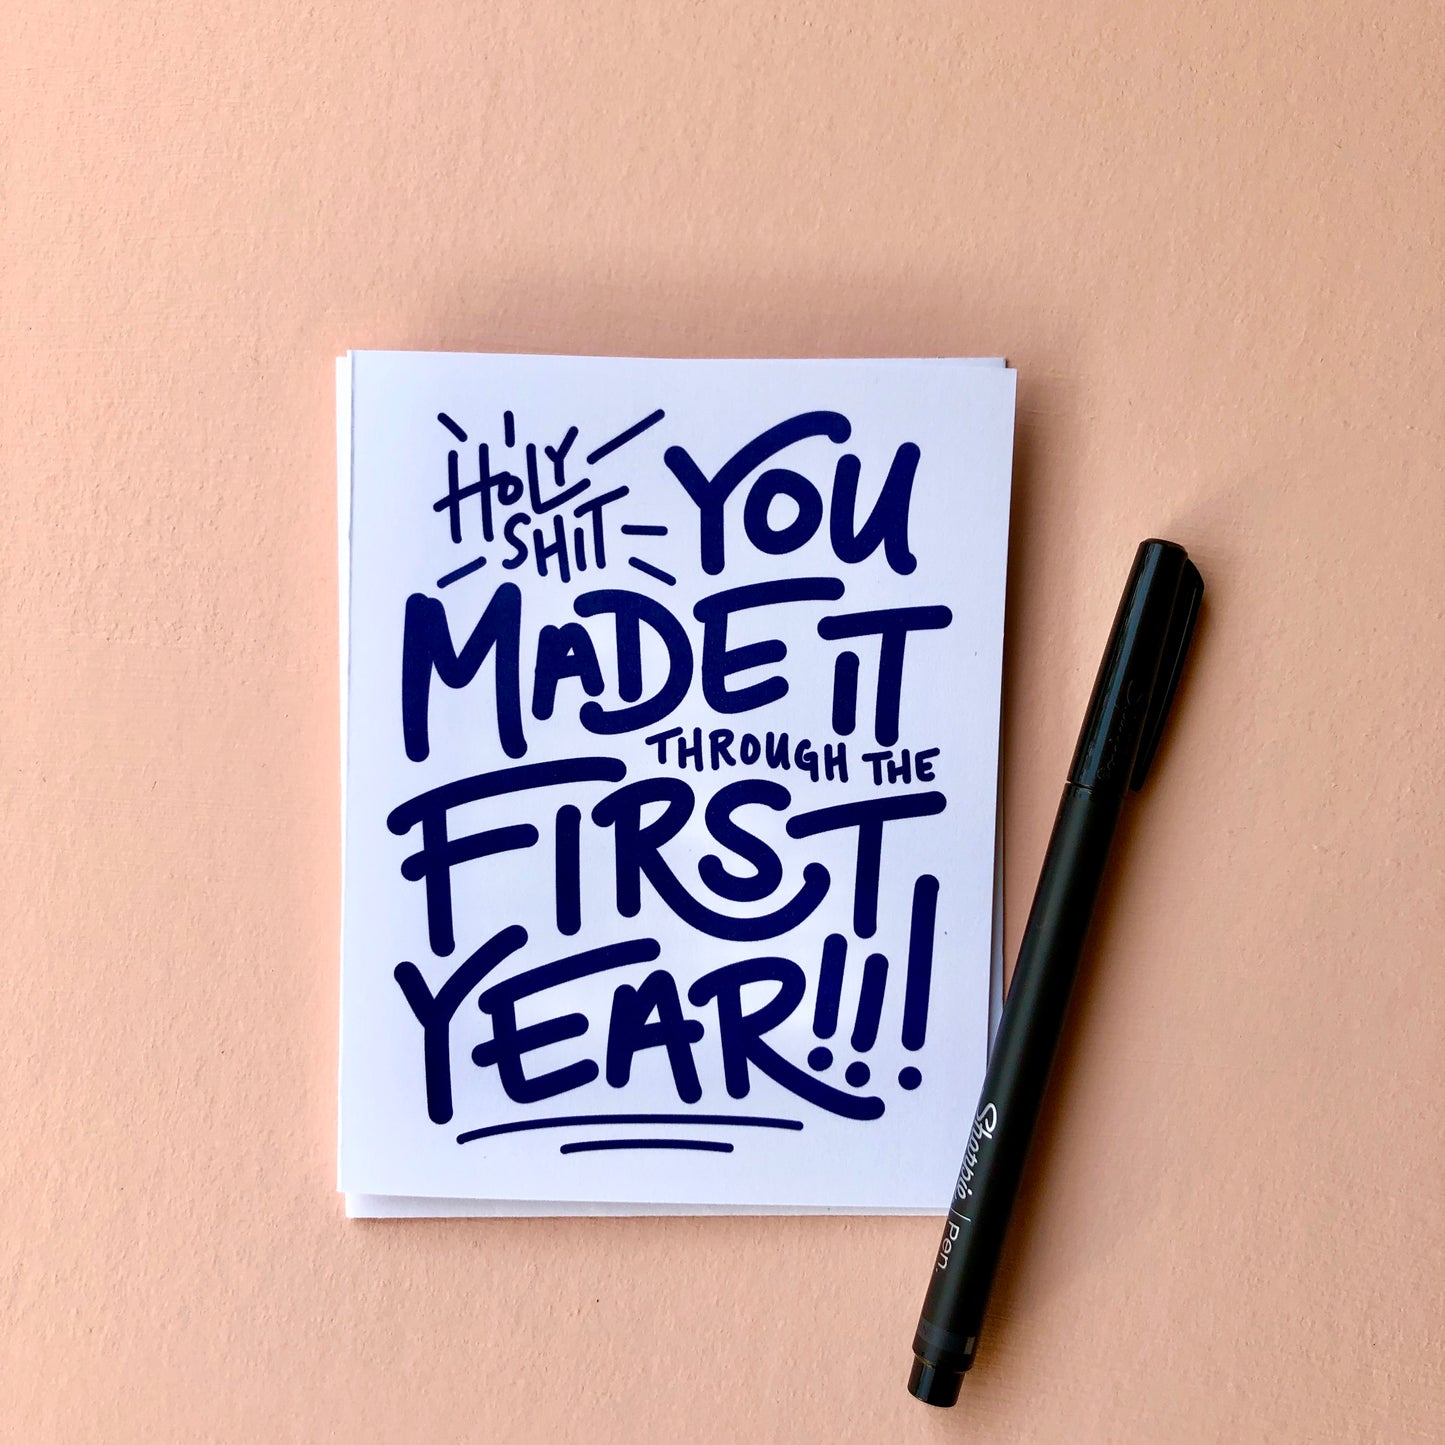 HOLY
SHIT
YOU
MADE IT
THROUGH THE
FIRST
YEAR!!!
Sharpie | Pen.